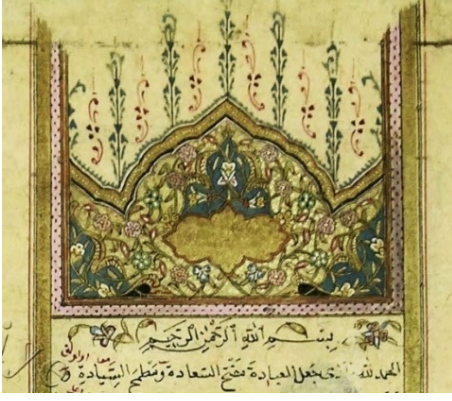 بسم الله الرحمن الرحيم
الحمد لله الذي جعل العبادة مفتح السعادة ومطمح السيادة و